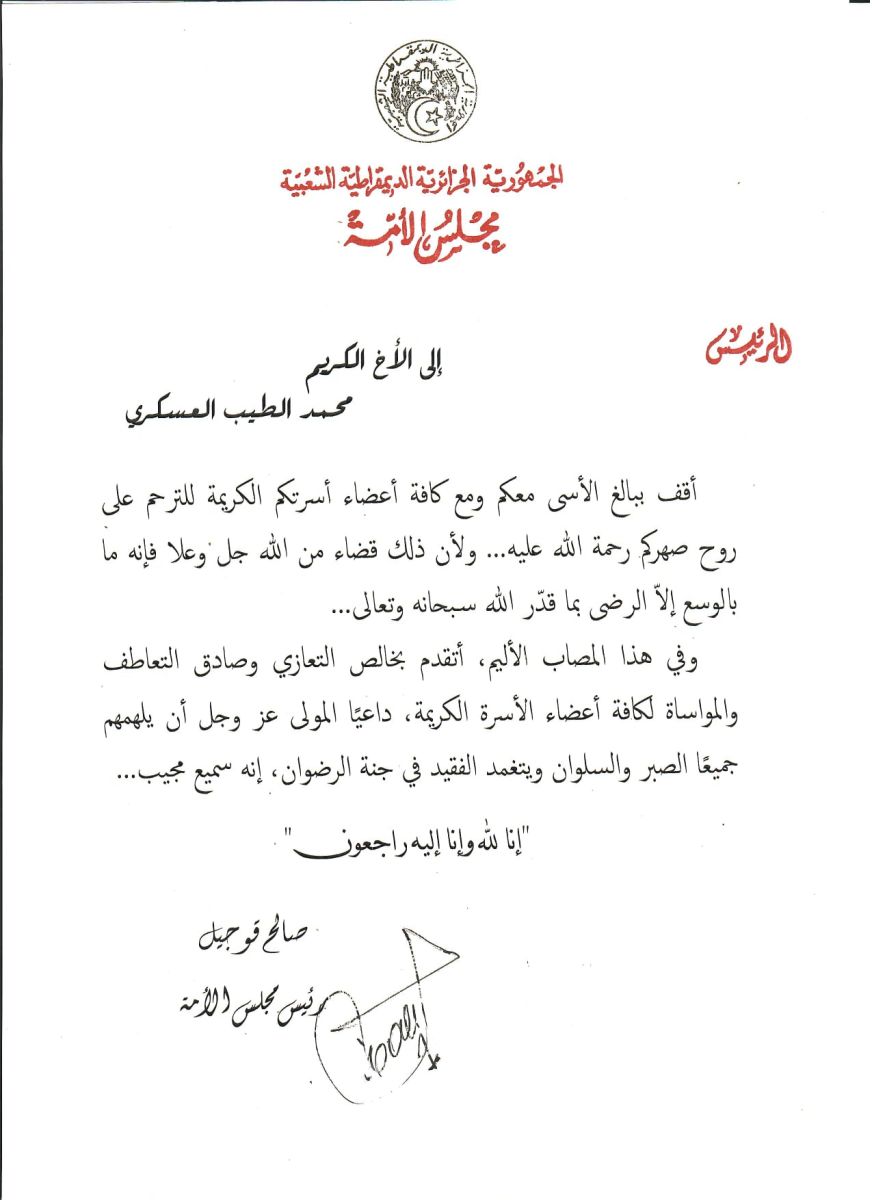 الجمهورية الجزائرية الديمقراطية الشعبية
الجمْهُوريّة الجزائريّة الديمقراطيّة الشعْبيّة
مجْلسُ الأمّة
الرئيس
إلى الأخ الكريم
محمد الطيب العسكري
أقف ببالغ الأسى معكم ومع كافة أعضاء أسرتكم الكريمة للترحم على
روح صهركم رحمة الله عليه... ولأن ذلك قضاء من الله جل وعلا فإنه ما
بالوسع إلاّ الرضى بما قدّر الله سبحانه وتعالى...
وفي هذا المصاب الأليم، أتقدم بخالص التعازي وصادق التعاطف
والمواساة لكافة أعضاء الأسرة الكريمة، داعيًا المولى عز وجل أن يلهمهم
جميعًا الصبر والسلوان ويتغمد الفقيد في جنة الرضوان، إنه سميع مجيب...
"إنا لله وإنا إليه راجعون"
صالح قوجيل
رئيس مجلس الأمة